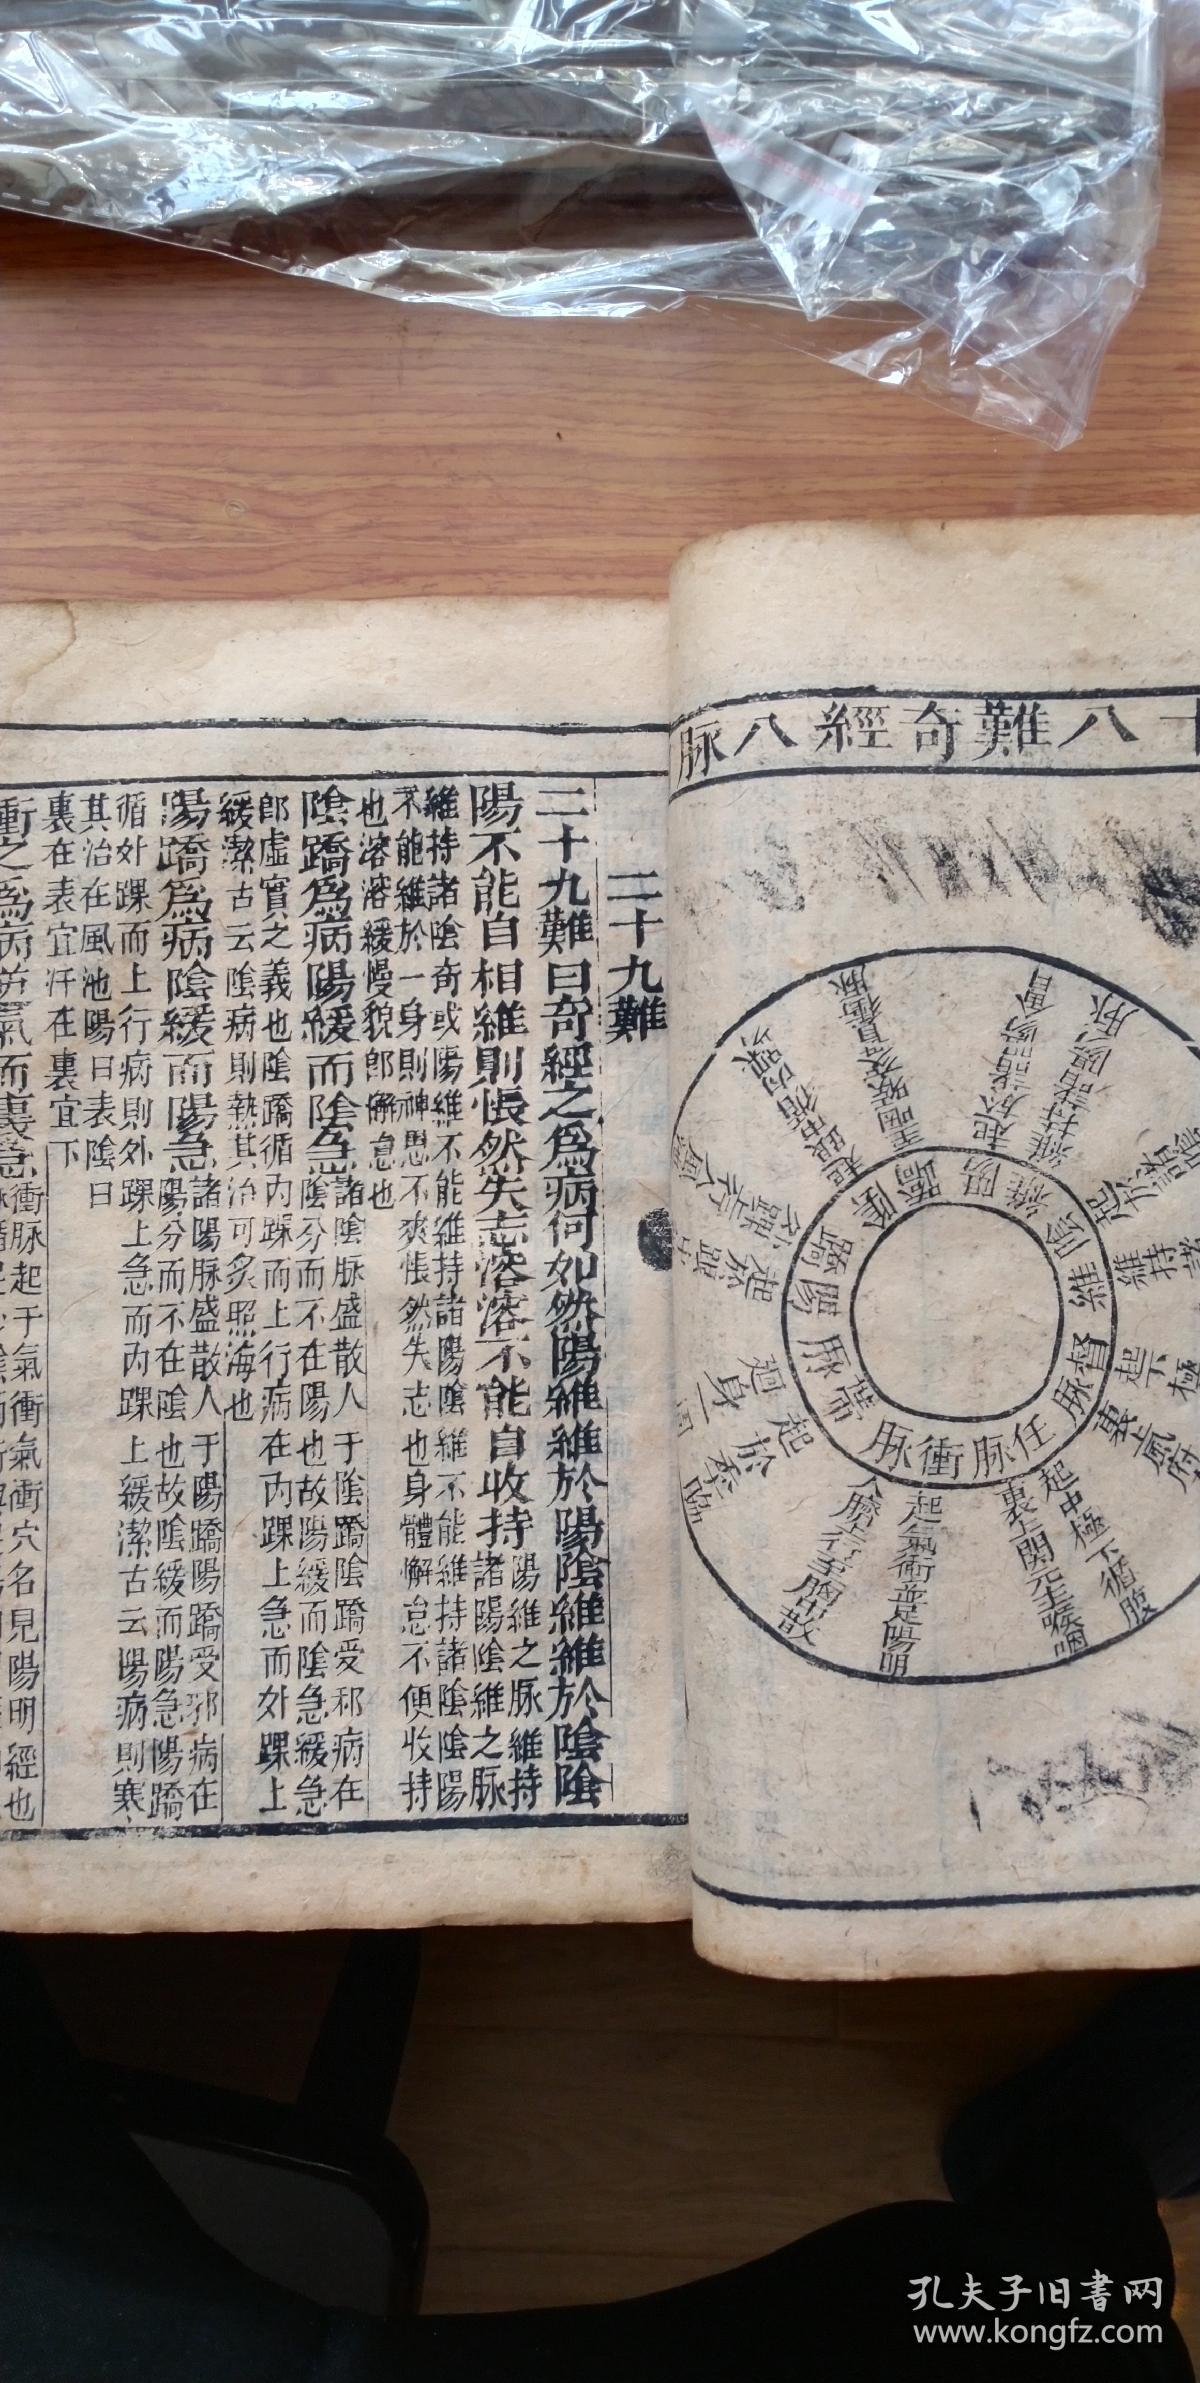 十八難奇經八脉
督脉
任脉
衝脉
帶脉
陽蹻
陰蹻
陽維
陰維
起中極下循腹
裏上關元至喉咽
起氣衝並足陽明
二十九難
二十九難曰奇經之爲病何如然陽維維於陽陰維維於陰陰
陽不能自相維則悵然失志溶溶不能自收持
陽維之脉維持
諸陽陰維之脉
維持諸陰奇或陽維不能維持諸陽陰維不能維持諸陰陰陽
不能維於一身則神思不爽悵然失志也身體懈怠不便收持
也溶溶緩慢貌卽懈怠也
陰蹻爲病陽緩而陰急
諸陰脉盛散入于陰蹻陰蹻受邪病在
陰分而不在陽也故陽緩而陰急緩急
卽虛實之義也陰蹻循內踝而上行病在內踝上急而外踝上
緩潔古云陰病則熱其治可炙照海也
陽蹻爲病陰緩而陽急
諸陽脉盛散入于陽蹻陽蹻受邪病在
陽分而不在陰也故陰緩而陽急陽蹻
循外踝而上行病則外踝上急而內踝上緩潔古云陽病則寒
其治在風池陽曰表陰曰
裏在表宜汗在裏宜下
衝之爲病逆氣而裏急
衝脉起于氣衝氣衝穴名見陽明經也
孔夫子旧书网
www.kongfz.com